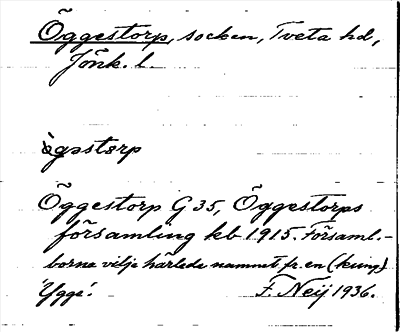 Öggestorp, socken, Tveta hd,
Jönk. l.
ògəstərp
Öggestorp G 35, Öggestorps
församling kb 1915. Församl.-
borna vilja härleda namnet fr. en (kung)
Ygge!
F. Neij 1936.